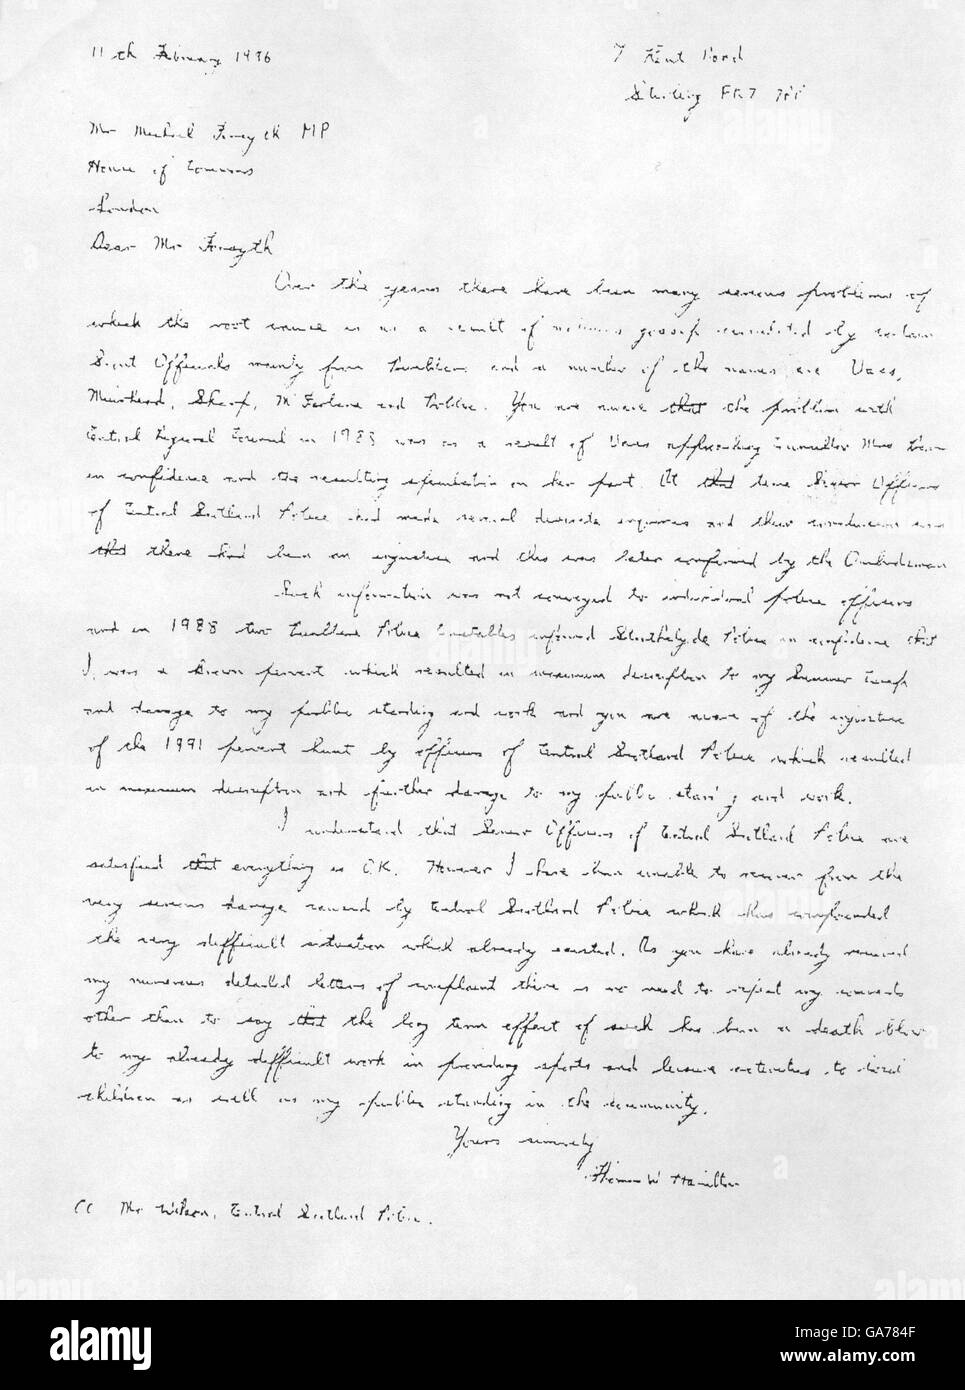 11th February 1996
7 Kent Road
Stirling FK7
Mr Michael Forsyth MP
House of Commons
London
Dear Mr Forsyth
Over the years there have been many serious problems of
which the root cause is as a result of malicious gossip by certain
Scout Officials mainly from and a number of the names are Vaes,
Muirhead, Sharp, McFarlane and You are aware that the problem with
Central Regional Council in 1983 was as a result of Vaes approaching Councillor Mrs
in confidence and the resulting speculation on her part. At that time Senior Officers
of Central Scotland Police had made several discrete enquiries and their conclusion was
that there had been an injustice and this was later confirmed by the Ombudsman
Such information was not conveyed to individual police officers
and in 1988 two Police Constables informed Strathclyde Police in confidence that
I was a Brown pervert which resulted in maximum disruption to my Summer Camp
and damage to my public standing and work and you are aware of the injustice
of the 1991 pervert hunt by officers of Central Scotland Police which resulted
in maximum disruption and further damage to my public standing and work.
I understand that Senior Officers of Central Scotland Police are
satisfied that everything is O.K. However I have been unable to recover from the
very serious damage caused by Central Scotland Police which has compounded
the very difficult situation which already existed. As you have already received
my numerous detailed letters of complaint there is no need to repeat my concerns
other than to say that the long term effect of such has been a death blow
to my already difficult work in providing sports and leisure activities to
children as well as my public standing in the community.
Yours sincerely
Thomas W Hamilton
CC Mr Wilson, Central Scotland Police.
alamy
GA784F
www.alamy.com